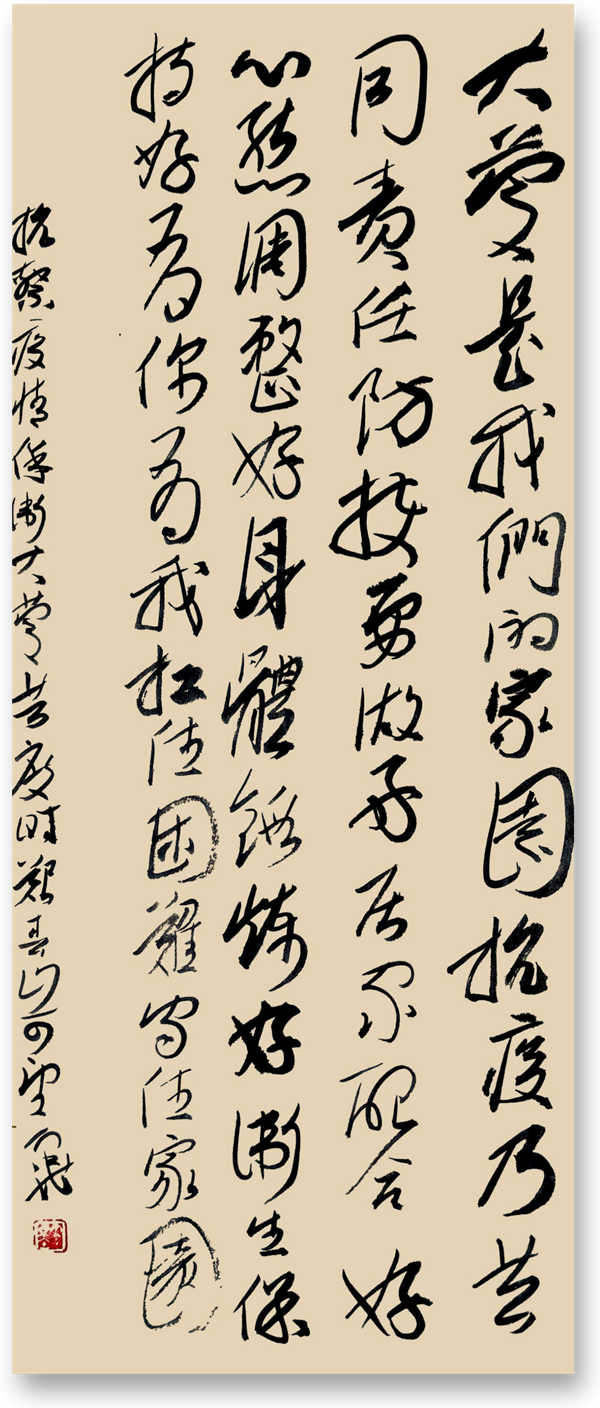 大夢是我們的家園抗疫乃共
同責任防控要做好居家配合好
心態調整好身體鍛煉好衛生保
持好為你為我扛住困難守住家園
抗擊疫情保衛大夢共度時艱春